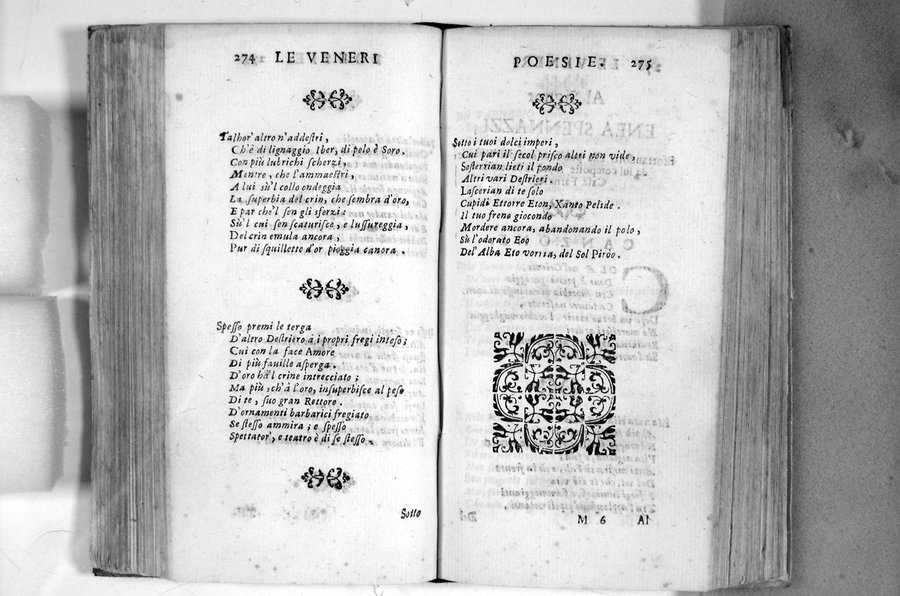 274 LE VENERI
Talhor' altro n'addestri,
Ch'è di lignaggio Iber, di pelo è Soro.
Con più lubrichi scherzi,
Mentre, che l'ammaestri,
A lui sù'l collo ondeggia
La superbia del crin, che sembra d'oro,
E par che'l sen gli sforzi:
Sù'l cui sen scaturisce, e lussureggia,
Del crin emula ancora,
Pur di squillette d'or pioggia canora.
Spesso premi le terga
D'altro Destriero à i propri fregi inteso;
Cui con la face Amore
Di più fauille asperga.
D'oro hà'l crine intrecciato;
Ma più, ch'à l'oro, insuperbisce al peso
Di te, suo gran Rettore.
D'ornamenti barbarici fregiato
Se stesso ammira; e spesso
Spettator, e teatro è di se stesso.
Sotto
POESIE. 275
Sotto i tuoi dolci imperi,
Cui pari il secol prisco altri non vide,
Sosterrian lieti il pondo
Altri vari Destrieri.
Lascerian di te solo
Cupidi Ettorre Eton, Xanto Pelide.
Il tuo freno giocondo
Mordere ancora, abandonando il polo,
Sù l'odorato Eoo
Del'Alba Eto vorria, del Sol Piròo.
M 6 Al